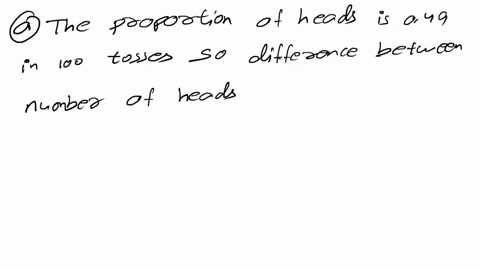 (a) The proportion of heads is 0.49
in 100 tosses so difference between
number of heads